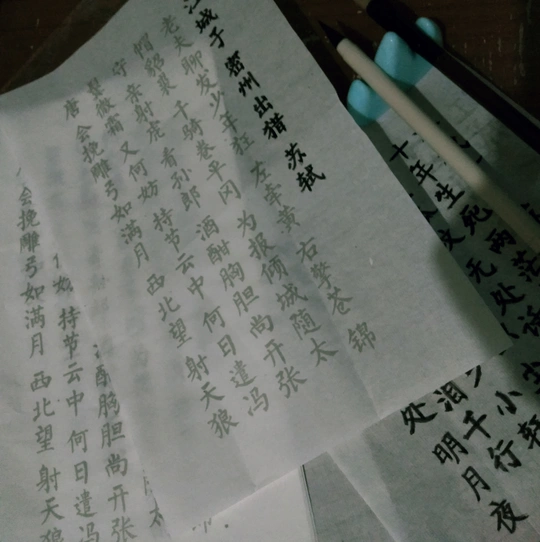 江城子 密州出猎 苏轼
老夫聊发少年狂 左牵黄 右擎苍 锦
帽貂裘 千骑卷平冈 为报倾城随太
守 亲射虎 看孙郎 酒酣胸胆尚开张
鬓微霜 又何妨 持节云中 何日遣冯
唐 会挽雕弓如满月 西北望 射天狼
太
酣胸胆尚开张
持节云中 何日遣冯
会挽雕弓如满月 西北望 射天狼
十年生死两茫
无处话
小轩
泪千行
处 明月夜